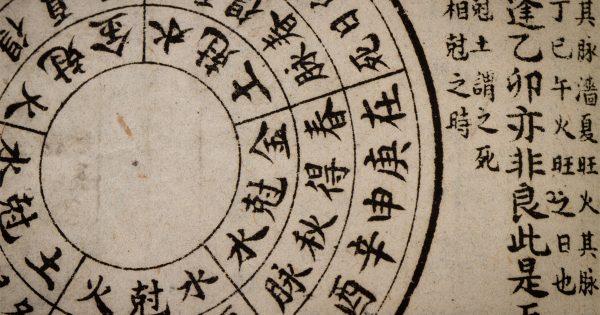 其脉濇夏旺火其脉
丁巳午火旺之日也
逢乙卯亦非良此是
尅土謂之死
相尅之時
在庚申辛酉
春得秋脉
金尅木
木尅土
火尅金
土尅水
水尅火